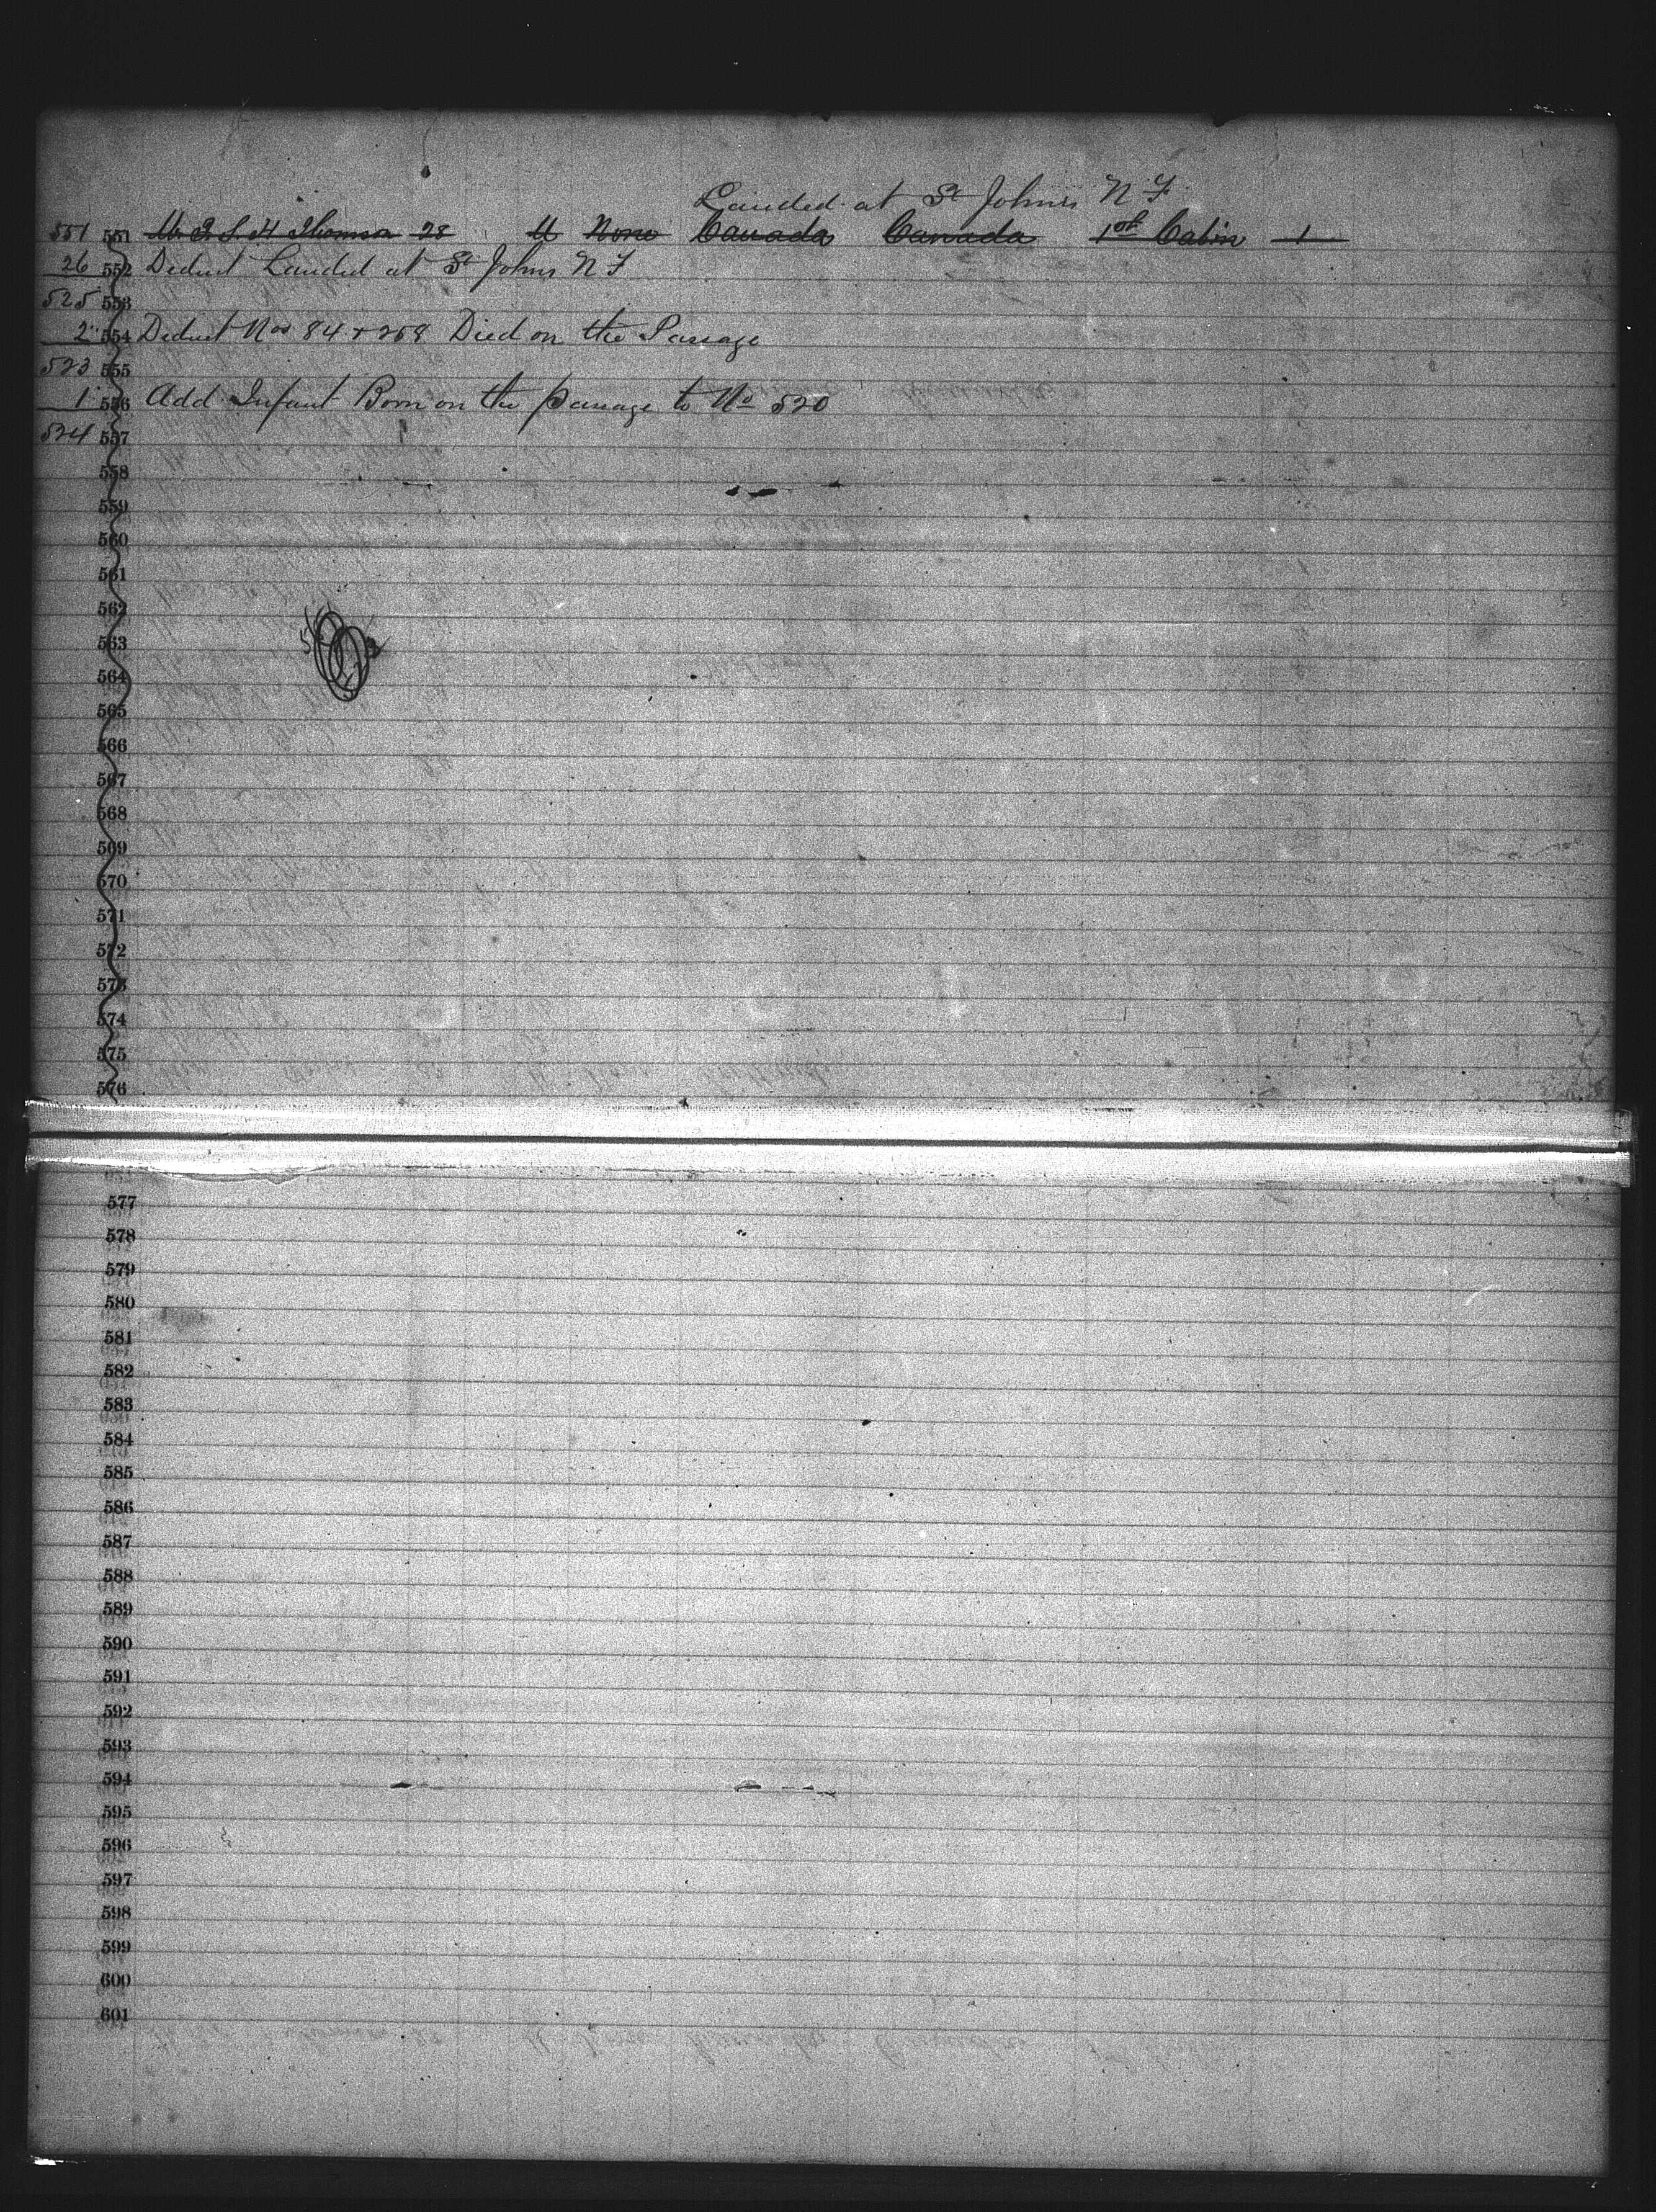 Landed at St Johns N F
551 551 Mr Thomson 28 M None Canada Canada 1st Cabin 1
26 552 Deduct Landed at St Johns N F
525 553
2 554 Deduct Nos 84 & 268 Died on the Passage
523 555
1 556 Add Infant Born on the passage to No 520
524 557
558
559
560
561
562
563
564
565
566
567
568
569
570
571
572
573
574
575
576
577
578
579
580
581
582
583
584
585
586
587
588
589
590
591
592
593
594
595
596
597
598
599
600
601